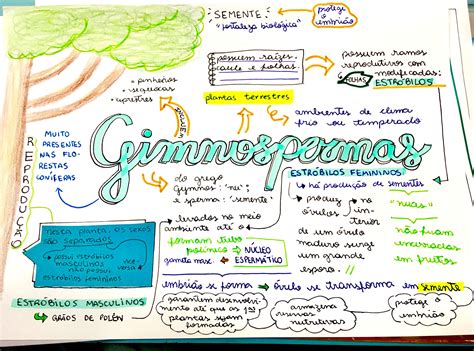 SEMENTE:
"fortaleza biológica"
protege o
embrião
possuem raízes,
caule e folhas
plantas terrestres
possuem ramos
reprodutivos com
FOLHAS modificadas:
ESTRÓBILOS
• pinheiros
• sequoias
• ciprestres
ambientes de clima
frio ou temperado
MUITO
PRESENTES
NAS FLO-
RESTAS
CONÍFERAS
REPRODUÇÃO
Gimnospermas
do grego
gymnos: 'nu';
e sperma: 'semente'
ESTRÓBILOS FEMININOS
↳ há produção de sementes
"nuas"
não ficam
encerradas
em frutos
produz
óvulos
no in-
terior
de um óvulo
maduro surge
um grande
esporo.
nesta planta, os sexos
são separados
↳ possui estróbilos
masculinos
não possui
estróbilos femininos
vice-
versa
levados no meio
ambiente até o
formam tubo
polínico → NÚCLEO
gameta masc. ESPERMÁTICO
ESTRÓBILOS MASCULINOS
↳ GRÃOS DE PÓLEN
embrião se forma → óvulo se transforma em semente
garantem desenvolvi-
mento até que as 1as
plantas sejam
formadas
armazena
reservas
nutritivas
protege o
embrião